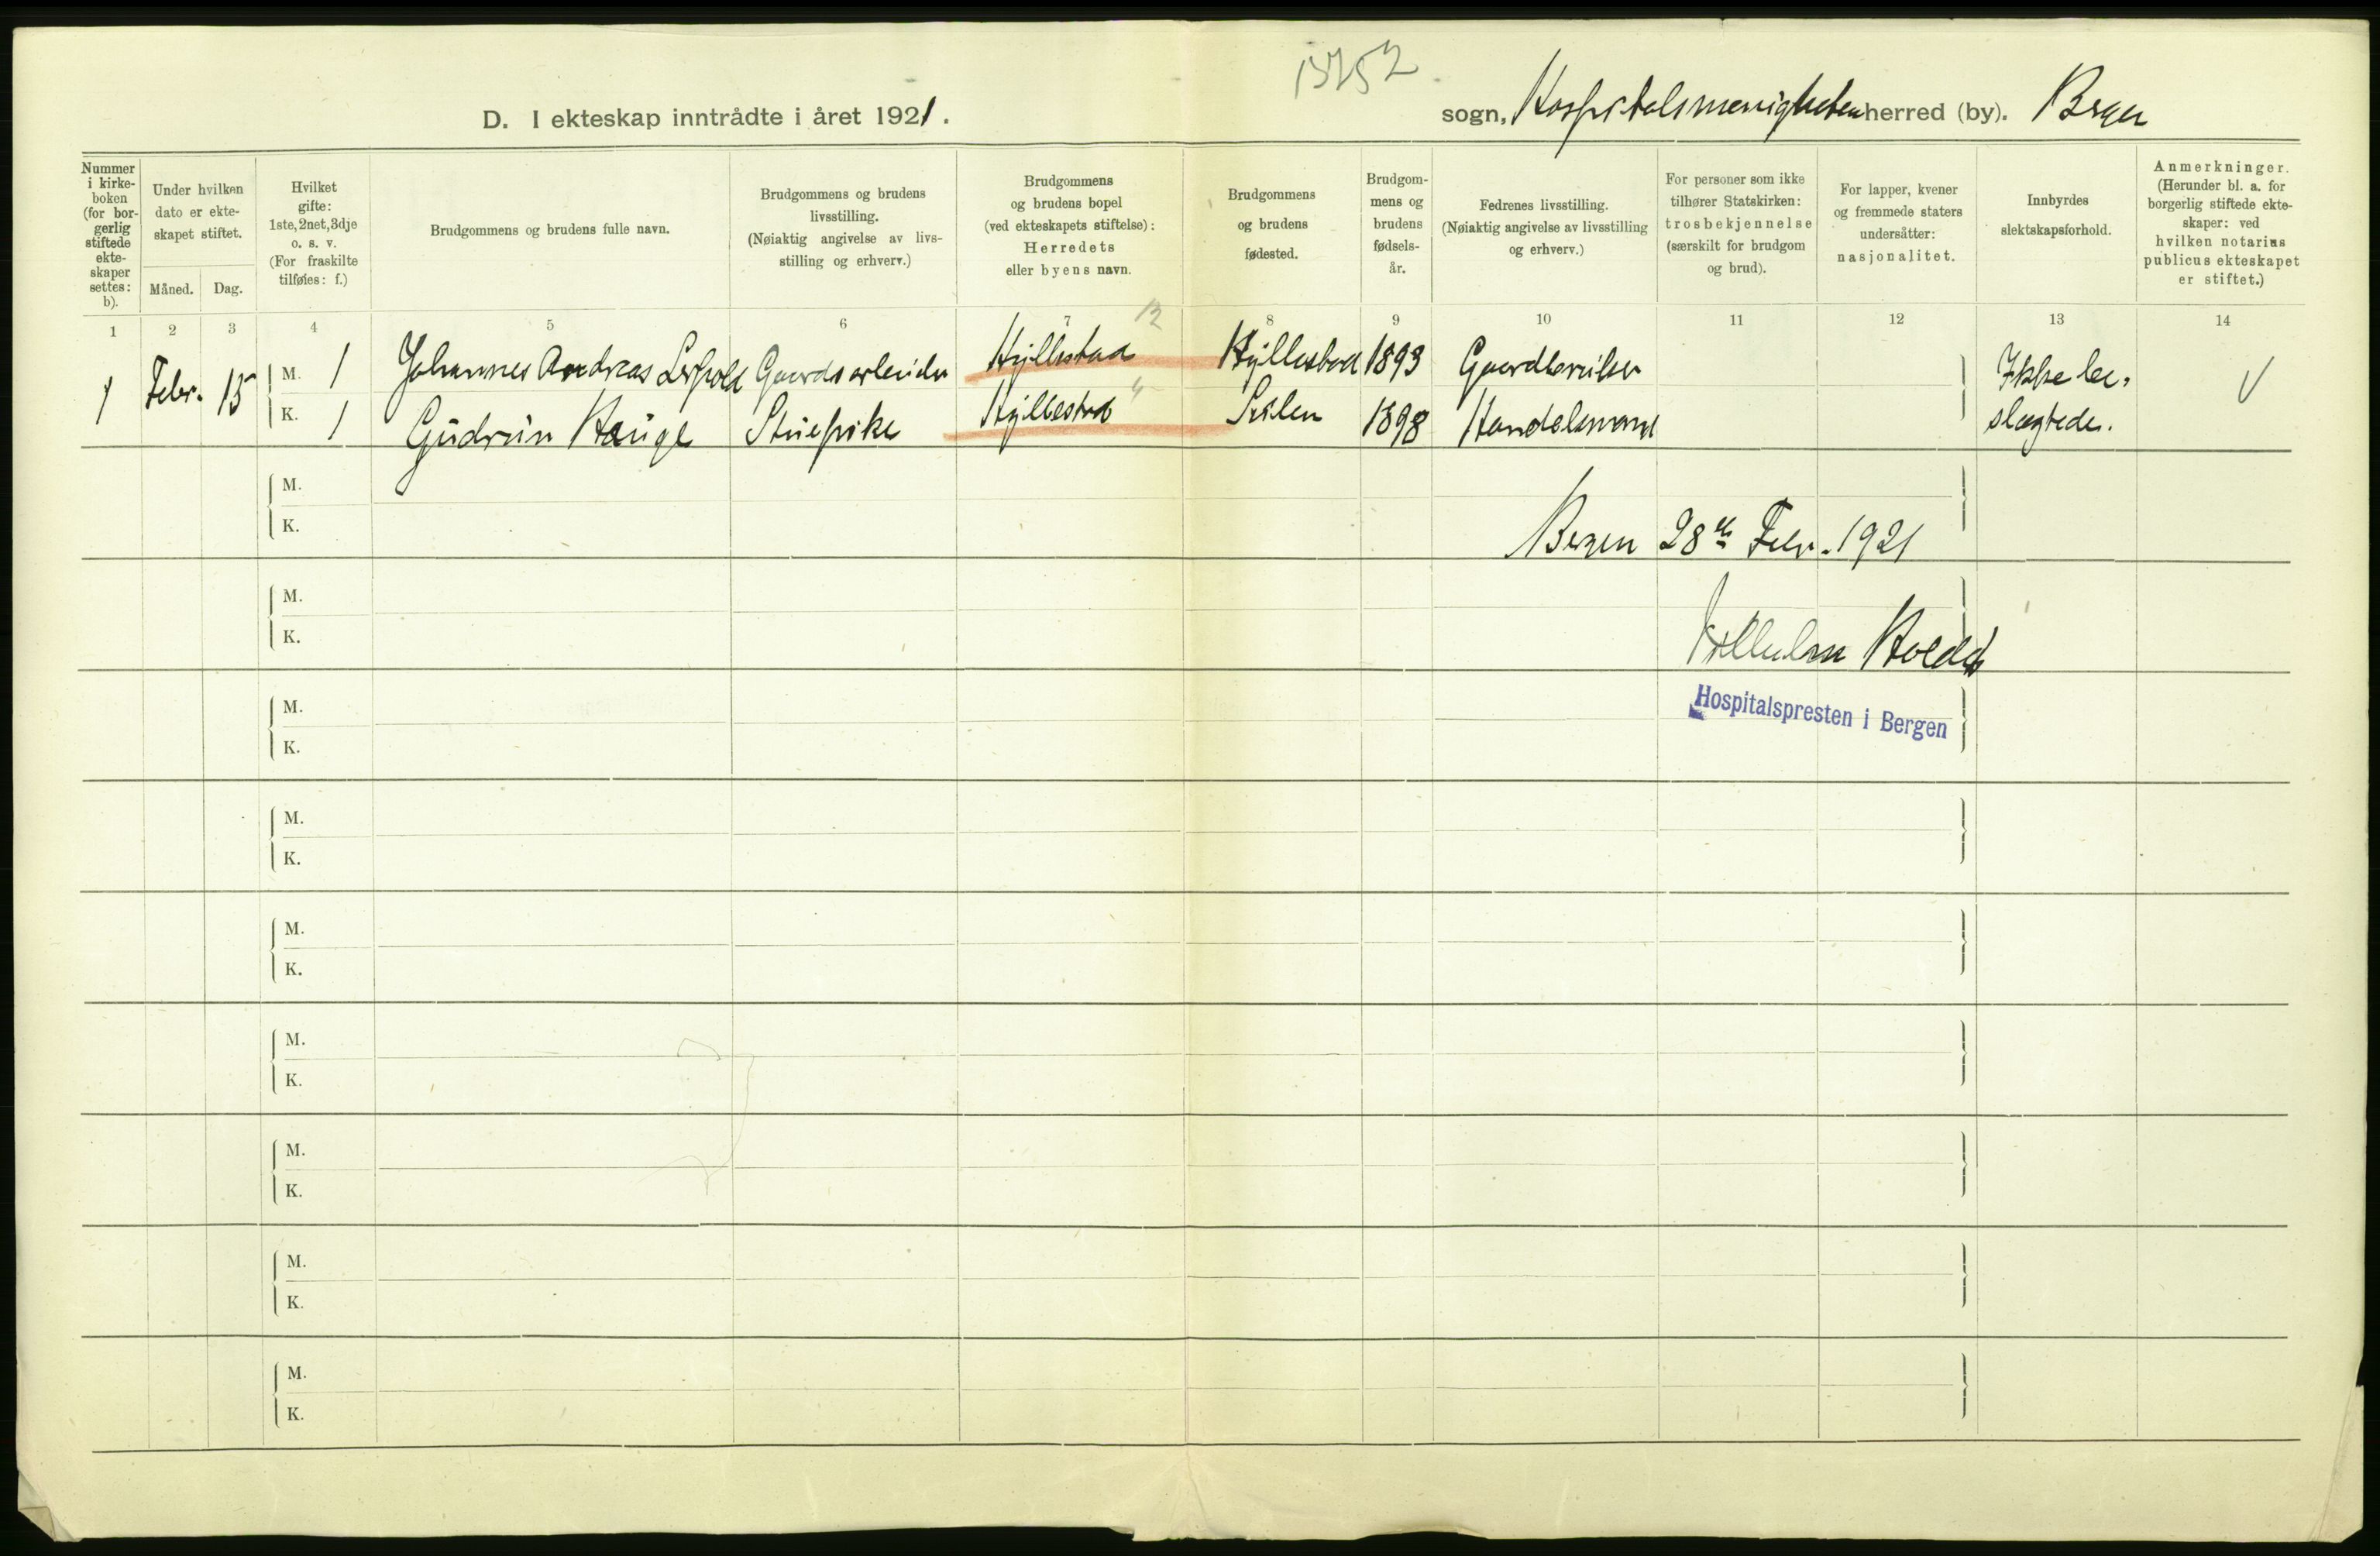 13752
D. I ekteskap inntrådte i året 1921.
sogn, Hospitalsmenigheten herred (by). Bergen
Nummer i kirke-boken (for bor-gerlig stiftede ekte-skaper settes: b).
Under hvilken dato er ekte-skapet stiftet.
Måned.
Dag.
Hvilket gifte: 1ste, 2net, 3dje o. s. v. (For fraskilte tilføies: f.)
Brudgommens og brudens fulle navn.
Brudgommens og brudens livsstilling. (Nøiaktig angivelse av livs-stilling og erhverv.)
Brudgommens og brudens bopel (ved ekteskapets stiftelse): Herredets eller byens navn.
Brudgommens og brudens fødested.
Brudgom-mens og brudens fødsels-år.
Fedrenes livsstilling. (Nøiaktig angivelse av livsstilling og erhverv.)
For personer som ikke tilhører Statskirken: trosbekjennelse (særskilt for brudgom og brud).
For lapper, kvener og fremmede staters undersåtter: nasjonalitet.
Innbyrdes slektskapsforhold.
Anmerkninger. (Herunder bl. a. for borgerlig stiftede ekte-skaper: ved hvilken notarius publicus ekteskapet er stiftet.)
1 2 3 4 5 6 7 8 9 10 11 12 13 14
1 Febr. 15 M. 1 Johannes Andreas Gaardsarbeider Hyllestad Hyllestad 1893 Gaardbruker Ikke be-
K. 1 Gudrun Hauge Stuepike Hyllestad 1898 Handelsmand slægtede.
M.
K.
Bergen 28de Febr. 1921
M.
K.
M.
K.
Hospitalspresten i Bergen
M.
K.
M.
K.
M.
K.
M.
K.
M.
K.
M.
K.